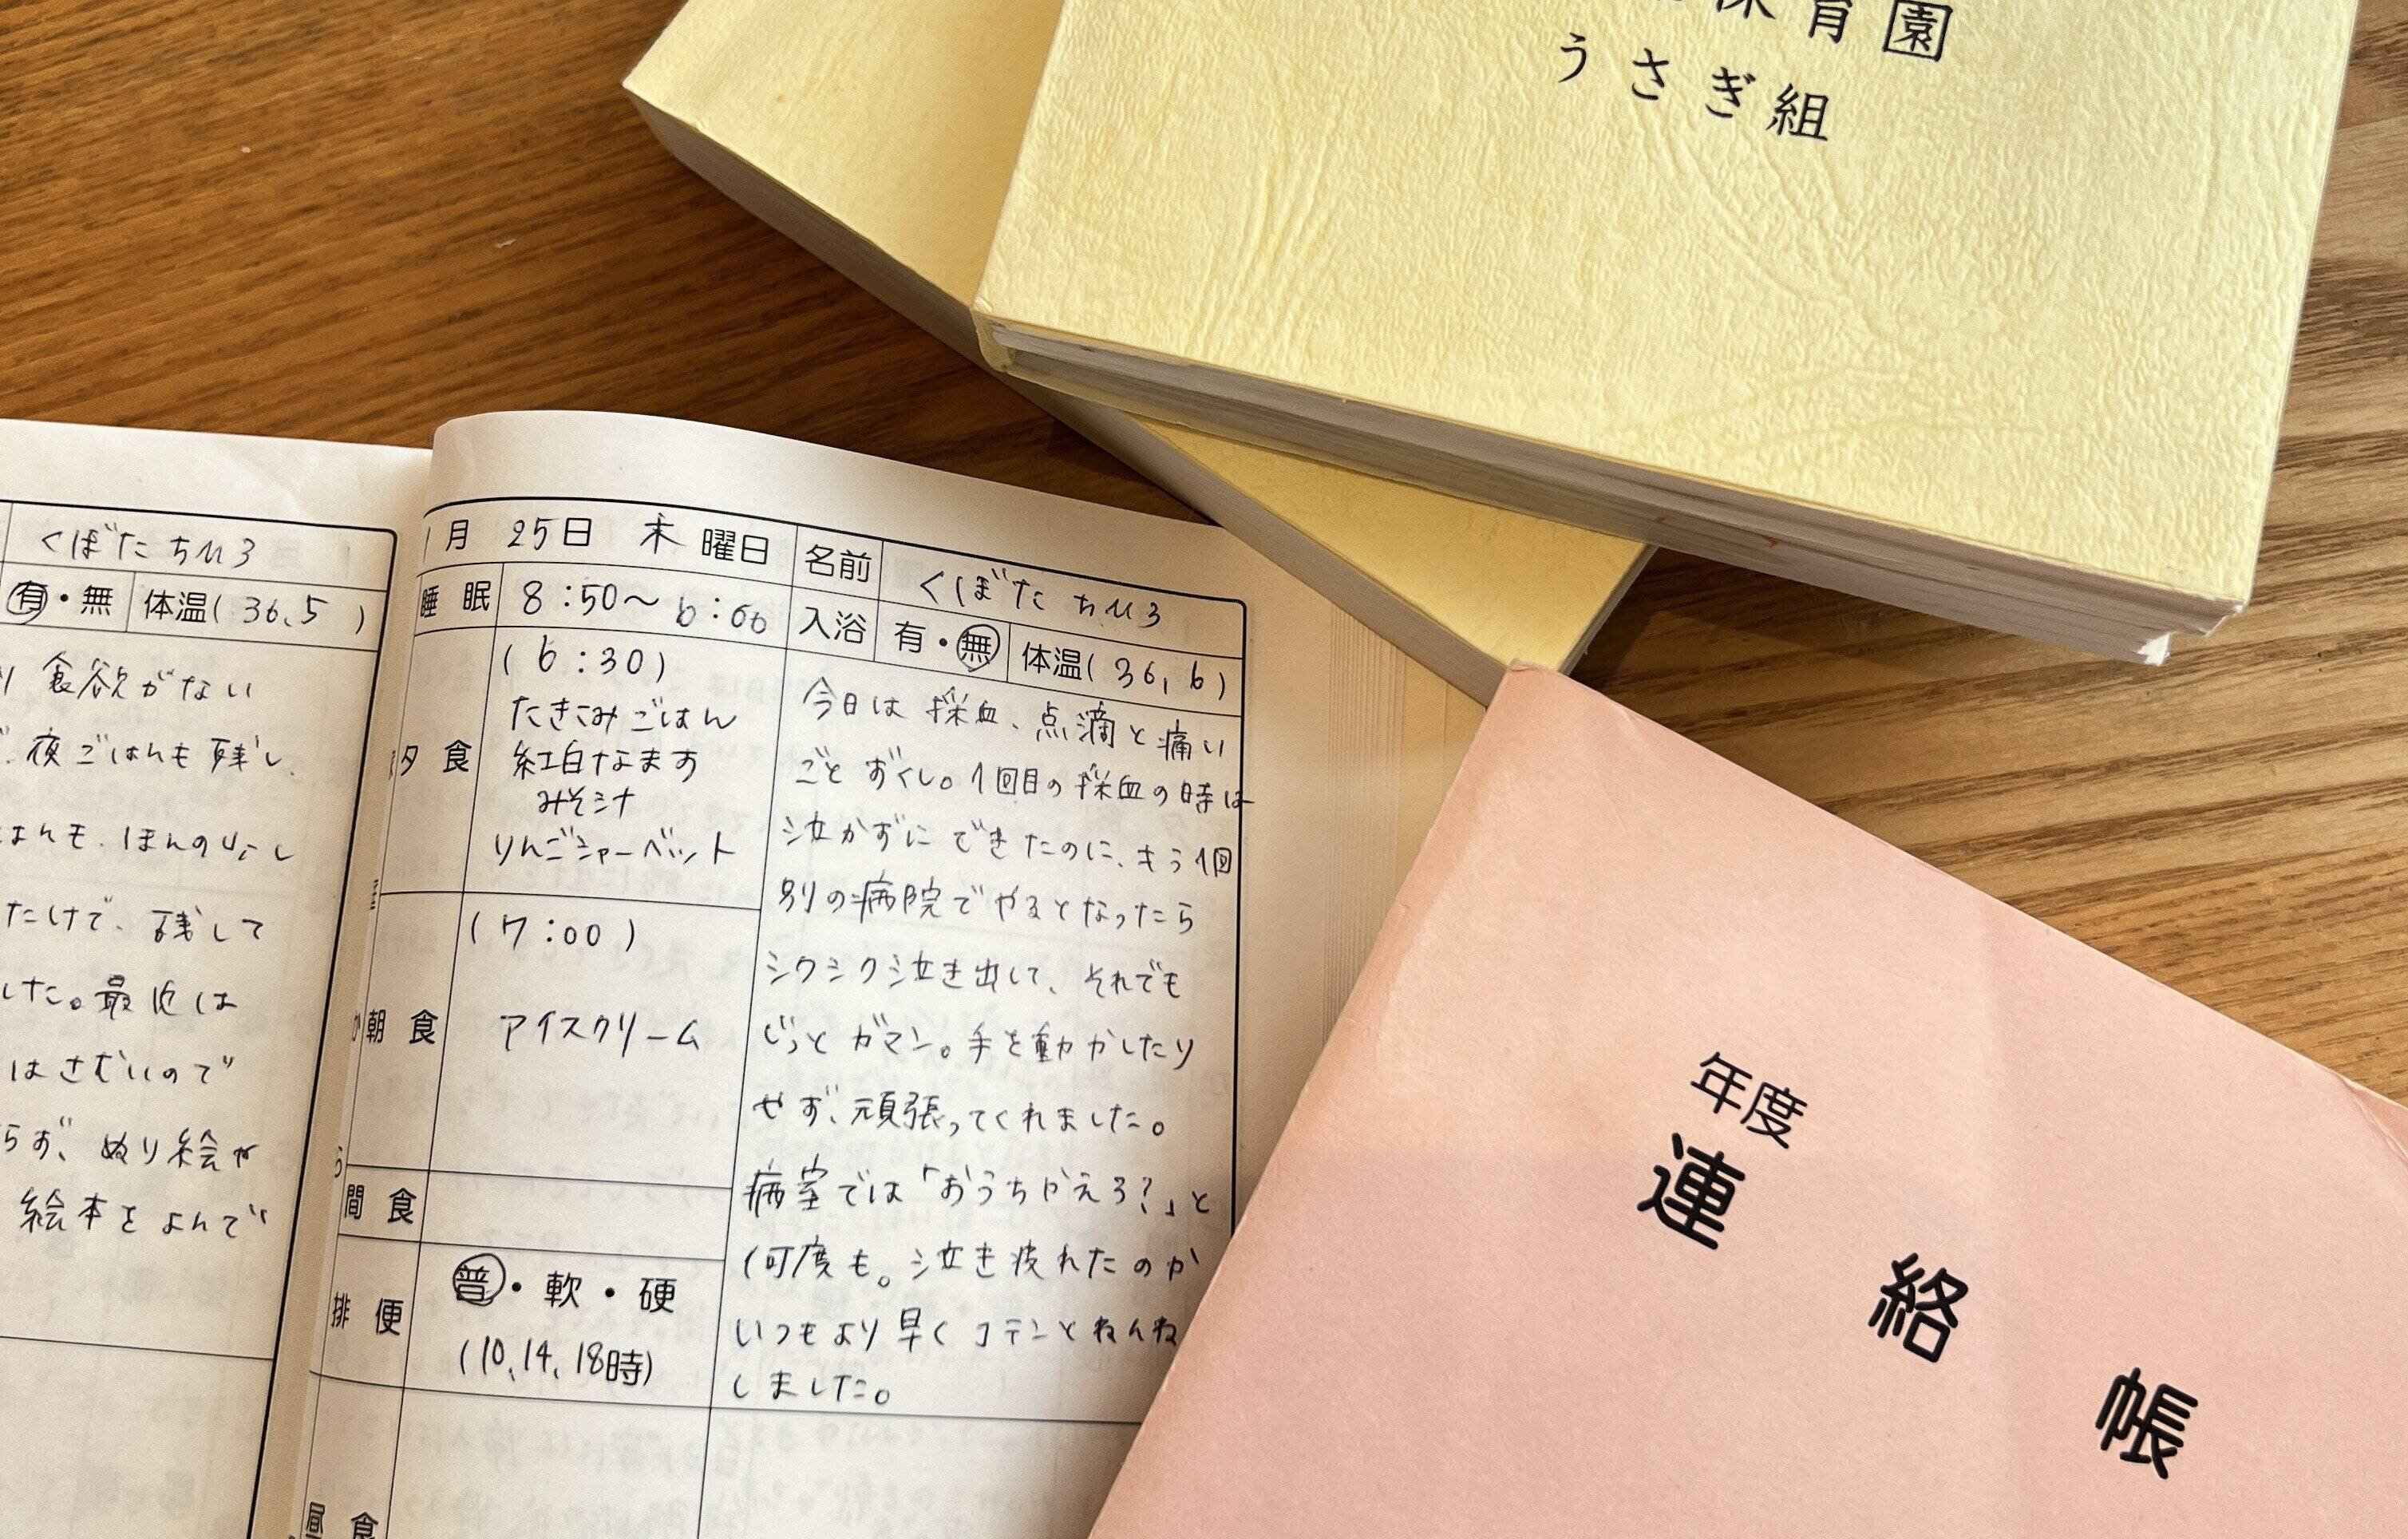 保育園
うさぎ組
くぼた ちひろ
有・無 体温(36.5)
食欲がない
夜ごはんも残し、
はんも、ほんの少し
だけで、残して
した。最近は
はさむいので
らず、ぬり絵や
絵本をよんで
1月 25日 木曜日 名前 くぼた ちひろ
睡眠 8:50〜6:00 入浴 有・無 体温(36.6)
夕食
(6:30)
たきこみごはん
紅白なます
みそ汁
りんごシャーベット
朝食
(7:00)
アイスクリーム
間食
排便
普・軟・硬
(10、14、18時)
昼食
今日は採血、点滴と痛い
ごとずくし。1回目の採血の時は
泣かずにできたのに、もう1回
別の病院でやるとなったら
シクシク泣き出して、それでも
じっとガマン。手を動かしたり
せず、頑張ってくれました。
病室では「おうちかえろ?」と
何度も。泣き疲れたのか
いつもより早くコテンとねんね
しました。
年度
連絡帳